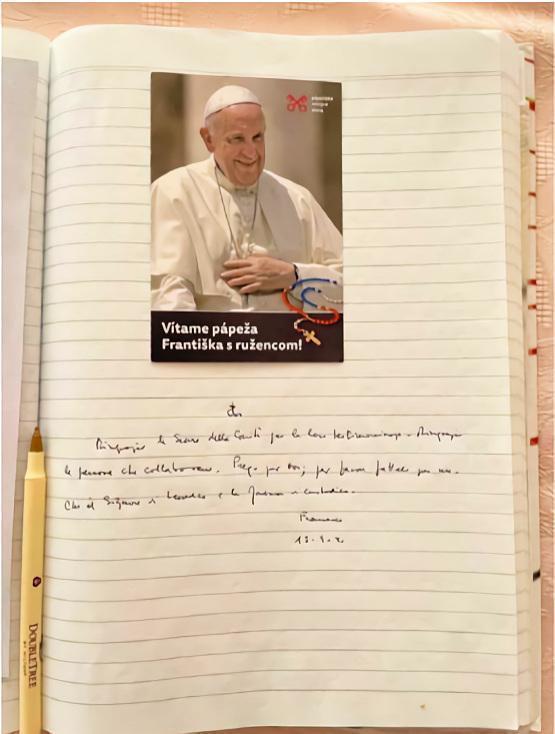 Vítame pápeža
Františka s ružencom!
Ringrazio le Suore della Carità per la loro testimonianza. Ringrazio
le persone che collaborano. Prego per voi; per favore fatelo per me.
Che il Signore vi benedica e la Madonna vi custodisca.
Francesco
DOUBLETREE